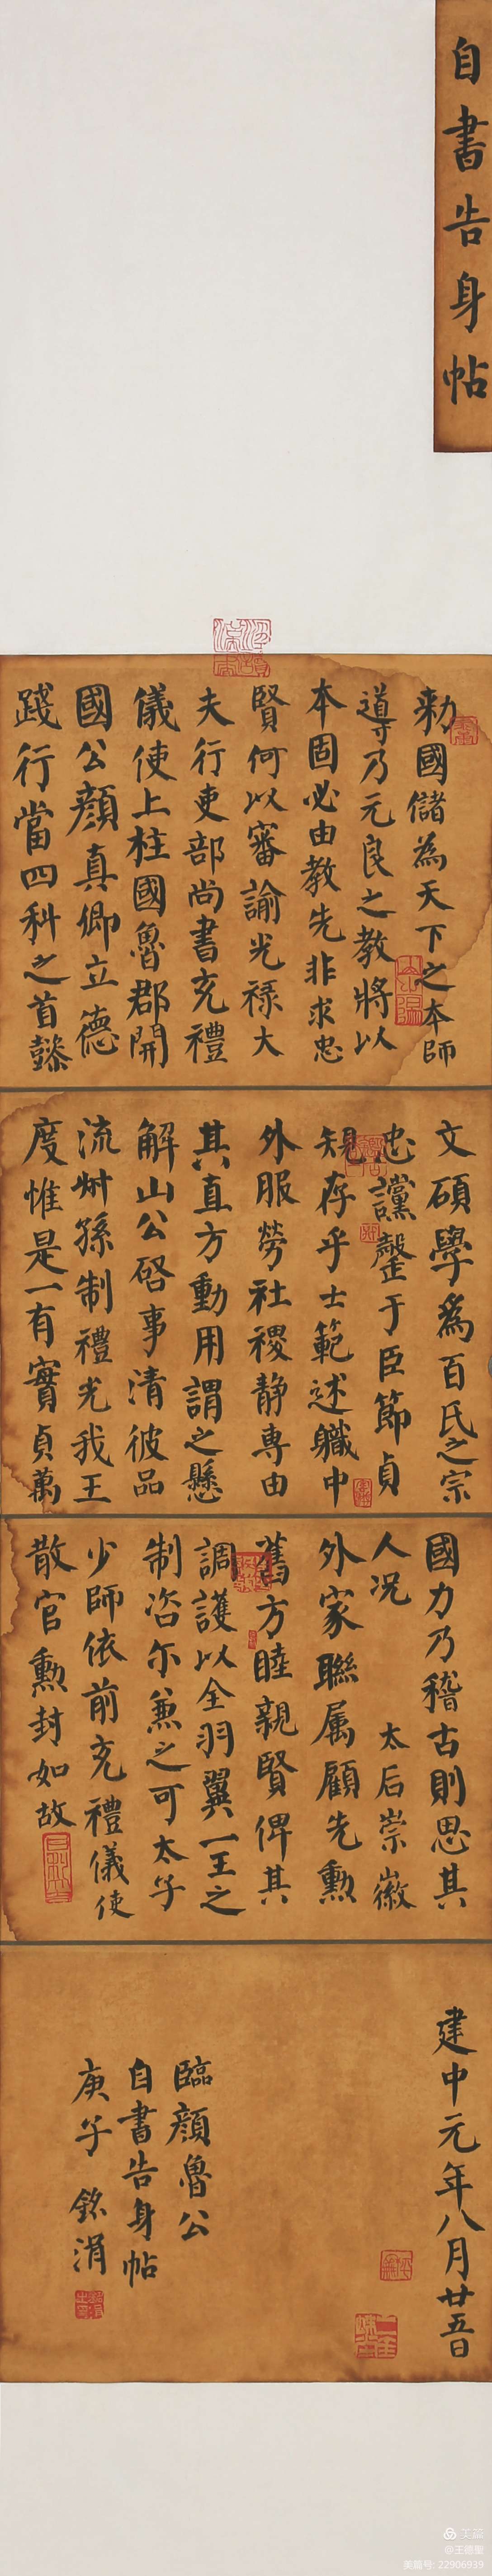 自書告身帖
勑國儲為天下之本師
導乃元良之教將以
本固必由教先非求忠
賢何以審諭光禄大
夫行吏部尚書充禮
儀使上柱國魯郡開
國公顔真卿立德
踐行當四科之首懿
文碩學為百氏之宗
忠讜罄于臣節貞
規存乎士範述職中
外服勞社稷静專由
其直方動用謂之懸
解山公啓事清彼品
流叔孫制禮光我王
度惟是一有實貞萬
國力乃稽古則思其
人况 太后崇徽
外家聯属顧先勲
舊方睦親賢俾其
調護以全羽翼一王之
制咨尓兼之可太子
少師依前充禮儀使
散官勲封如故
建中元年八月廿五日
臨顔魯公
自書告身帖
庚子 銘涓
美篇
@王德聖
美篇号: 22906939